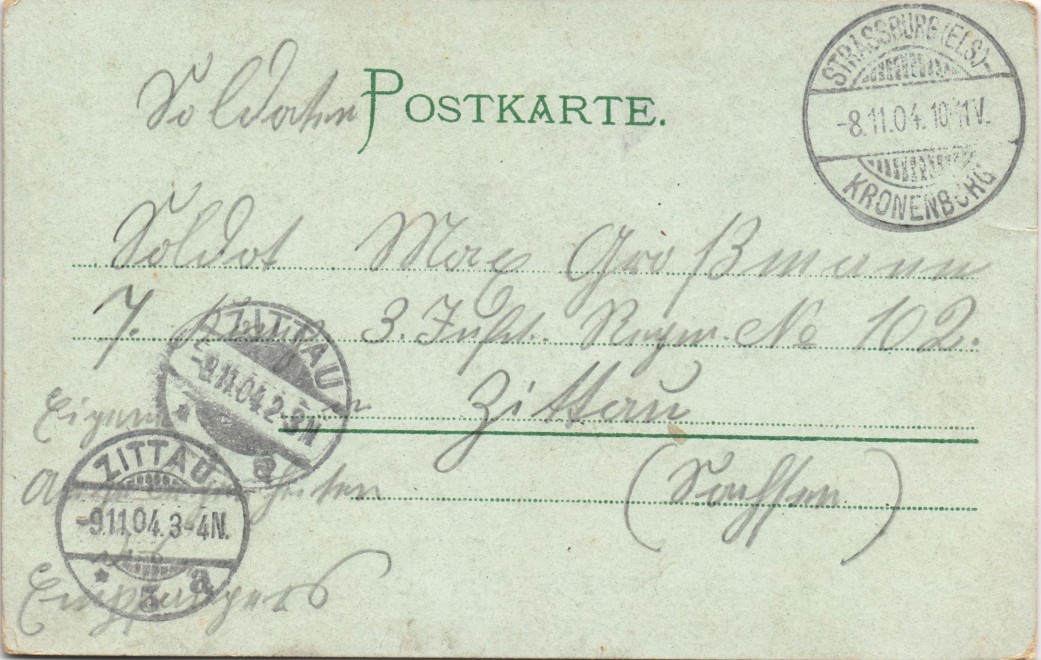 Soldaten POSTKARTE.
STRASSBURG (ELS)-
-8.11.04. 10-11V.
KRONENBURG
Soldat Max Großmann
7. 3. Inft. Regim. No 102.
ZITTAU
-9.11.04. 2-3N
a
Zittau
Eigene
ZITTAU
-9.11.04. 3-4N.
* 3 a
Angelegenheiten (Sachsen)
des
Empfängers